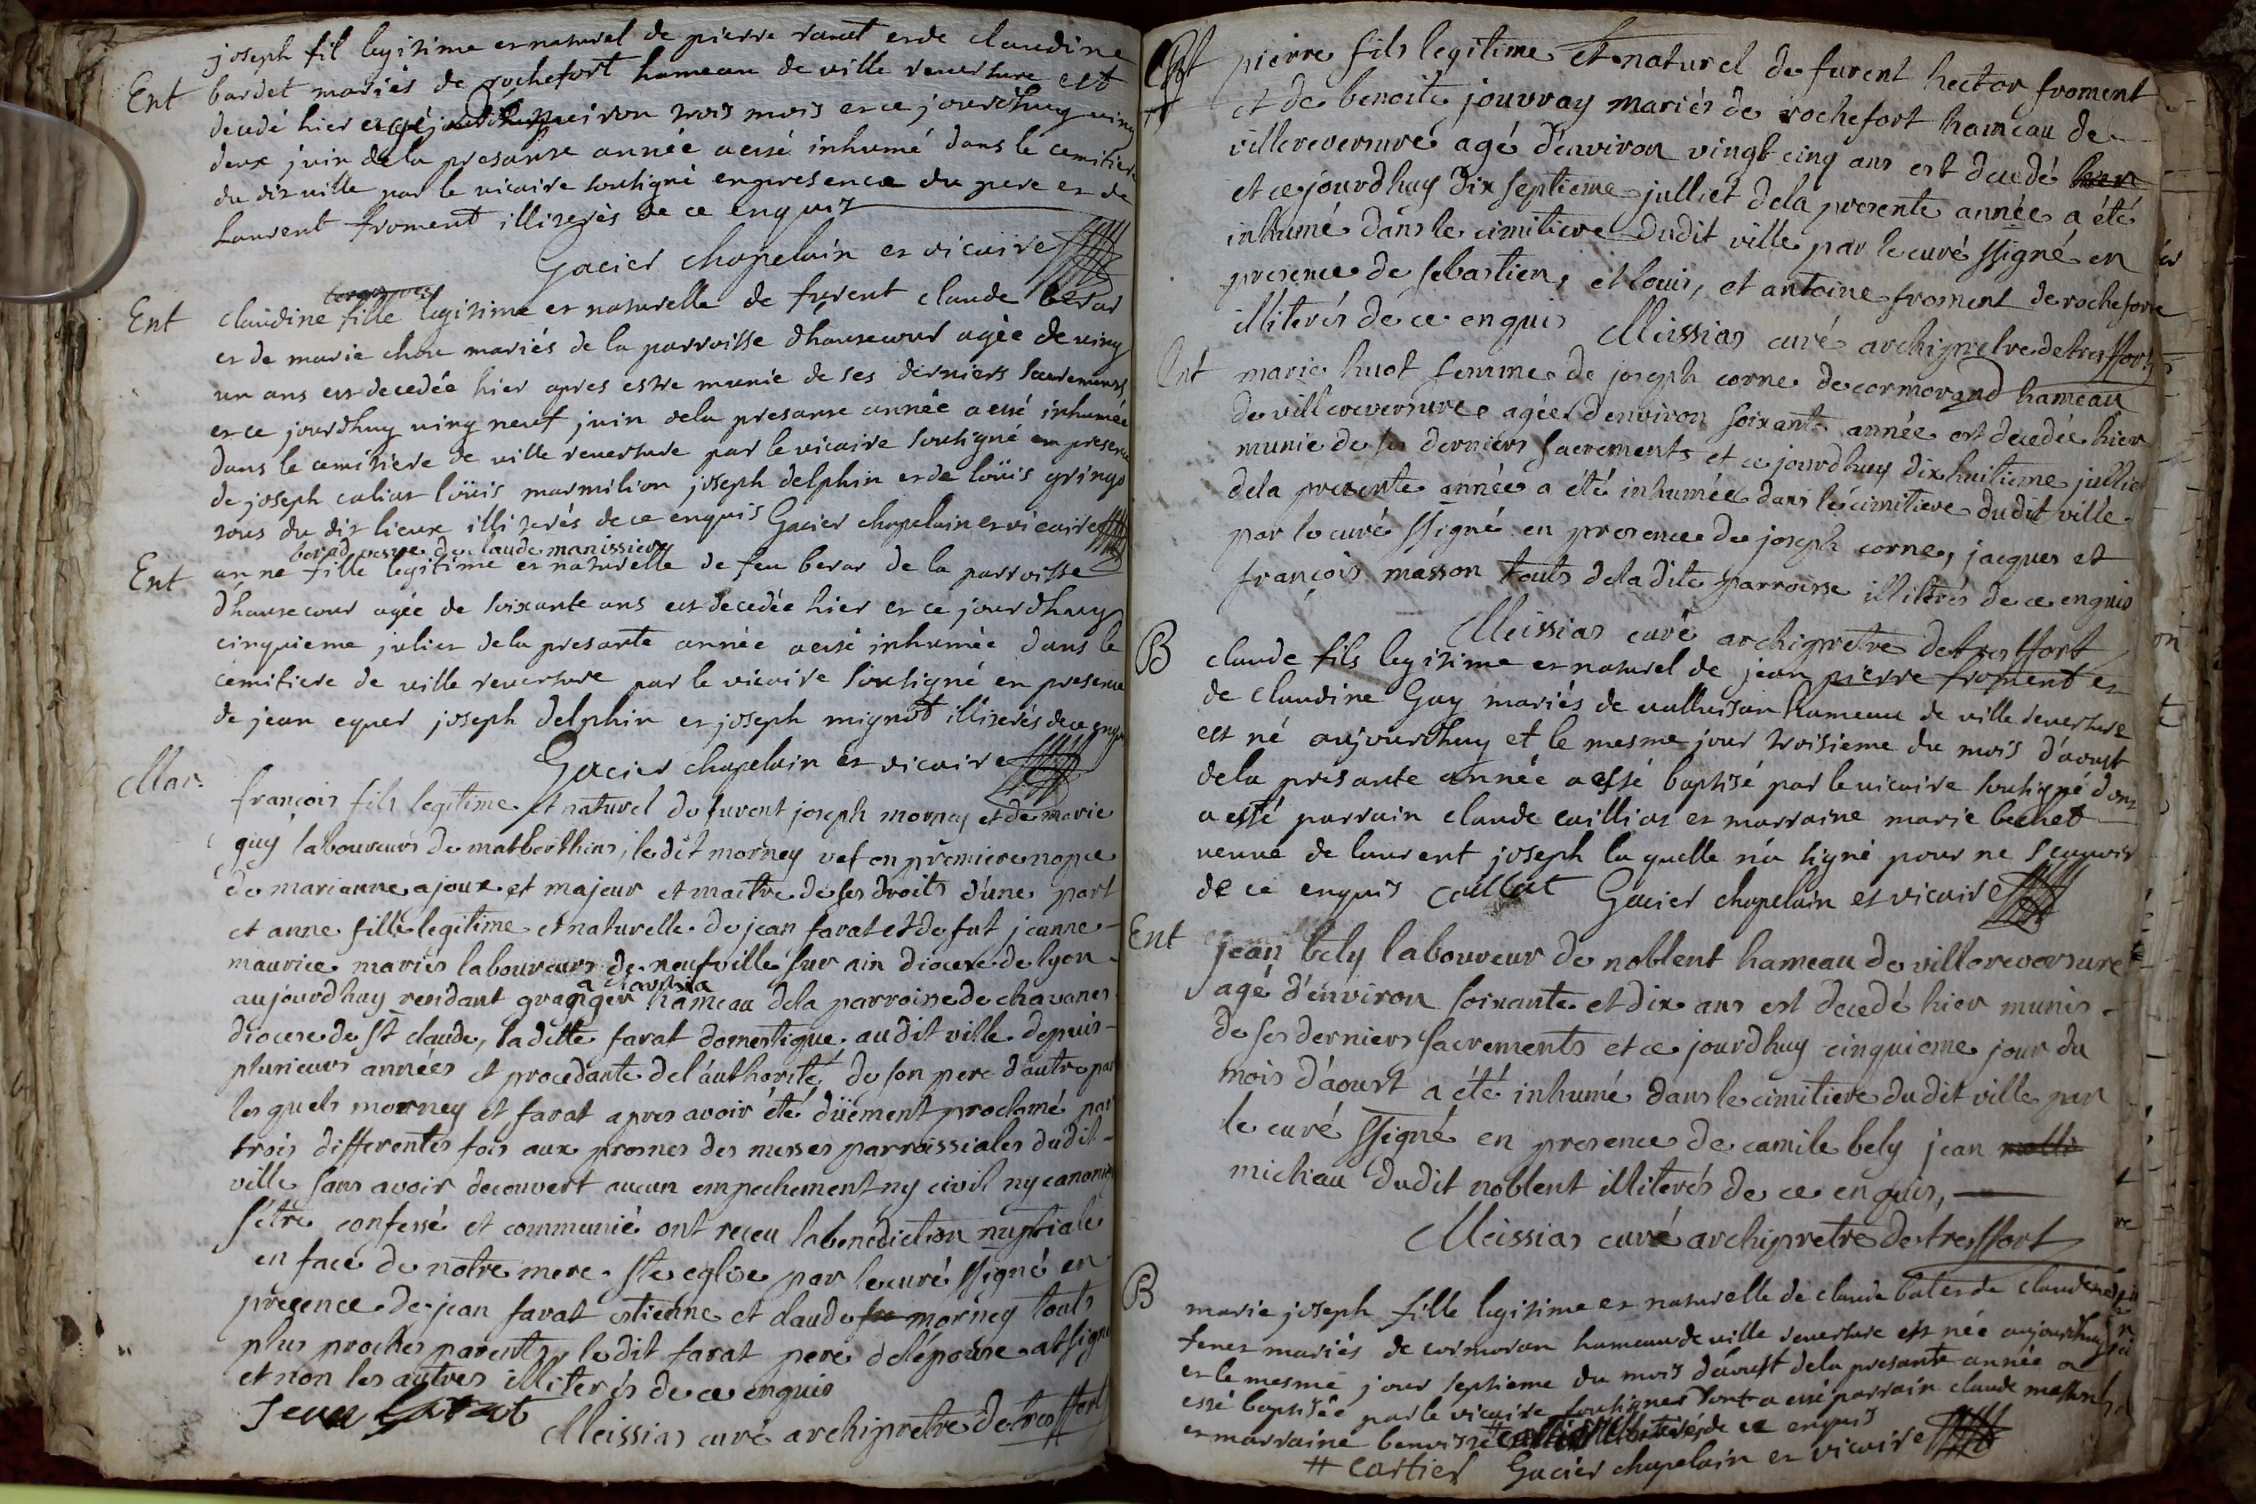 joseph fil legitime et naturel de pierre ravat et de claudine
Ent bardet mariés de rochefort hameau de ville reversure est
decedé hier agé d'environ trois mois et ce jourdhuy vingt
deux juin de la presante année a esté inhumé dans le cemitiere
du dit ville par le vicaire soutigné en presence du pere et de
Laurent froment illiterés de ce enquis
Gacier chapelain et vicaire
Ent claudine fille legitime et naturelle de furent claude berar
et de marie chou mariés de la parroisse dhautecour agée de ving
un ans est decedée hier apres estre munie de ses derniers sacremens
et ce jourdhuy ving neuf juin dela presante année a esté inhumée
dans le cemitiere de ville reversure par le vicaire soutigné en presence
de joseph caliat loüis marmilion joseph delphin et de loüis gringo
tous du dit lieux illiterés de ce enquis Gacier chapelain et vicaire
berad vesve de claude manissier
Ent anne fille legitime et naturelle de feu berar de la parroisse
dhautecour agée de soixante ans est decedée hier et ce jourdhuy
cinquieme julier dela presante année a esté inhumée dans le
cemitiere de ville reversure par le vicaire soutigné en presence
de jean equer joseph delphin et joseph mignot illiterés de ce enquis
Gacier chapelain et vicaire
Mar. françois fils legitime et naturel de furent joseph morney et de marie
guy laboureurs de matberthins, le dit morney vef en premiere nopce
de marianne ajoux et majeur et maitre de ses droits d'une part
et anne fille legitime et naturelle de jean farat et de fut jeanne
maurice mariés laboureurs de neufville sur ain diocese de lyon
aujourdhuy residant granger hameau dela parroisse de chavanes
diocese de st claude, la ditte farat domestique audit ville depuis
plusieurs années et procedante de l'authorité de son pere d'autre part
lesquels morney et farat apres avoir été düement proclamé par
trois differentes fois aux prosnes des messes parroissiales dudit
ville sans avoir decouvert aucun empechement ny civil ny canonique
s'être confessé et communié ont receu la benediction nuptiale
en face de notre mere ste eglise par le curé ssigné en
presence de jean farat estienne et claude morney touts
plus proches parents, le dit farat pere de l'epouse at signé
et non les autres illiterés de ce enquis
Jean farat Meissias curé archipretre de tresffort
Ent pierre fils legitime et naturel de furent hector froment
et de benoite jouvray mariés de rochefort hameau de
villereversure agé d'environ vingt cinq ans est decedé hier
et ce jourdhuy dix septieme julliet dela presente année a été
inhumé dans le cimitiere dudit ville par le curé ssigné en
presence de sebastien, et louis, et antoine froment de rochefort
illiterés de ce enquis Meissias curé archipretre de tresffort
Ent marie huot femme de joseph corne de cormorand hameau
de villereversure agée d'environ soixante année est decedée hier
munie de ses derniers sacrements et ce jourdhuy dixhuitieme julliet
dela presente année a été inhumée dans le cimitiere dudit ville
par le curé ssigné en presence de joseph corne, jacques et
françois masson touts de la dite parroisse illiterés de ce enquis
Meissias curé archipretre de tresffort
B claude fils legitime et naturel de jean pierre froment et
de claudine Gay mariés de valluisan hameau de ville reversure
est né aujourdhuy et le mesme jour troisieme du mois d'aoust
dela presante année a esté baptisé par le vicaire soutigné dont
a esté parrain claude caillias et marraine marie bechet
veuve de laurent joseph la quelle n'a signé pour ne sçavoir
de ce enquis Caillat Gacier chapelain et vicaire
Ent jean bely laboureur de noblent hameau de villereversure
agé d'environ soixante et dix ans est decedé hier munis
de ses derniers sacrements et ce jourdhuy cinquieme jour du
mois d'aoust a été inhumé dans le cimitiere dudit ville par
le curé ssigné en presence de camile bely jean
michau dudit noblent illiterés de ce enquis,
Meissias curé archipretre de tresffort
B marie joseph fille legitime et naturelle de claude bater de claudine
fener mariés de cormoran hameau de ville reversure est née aujourdhuy
et le mesme jour septieme du mois daoust dela presante année a
esté baptisée par le vicaire soutigner dont a esté parrain claude masson
et marraine benoiste illiterés de ce enquis
# Cartier Gacier chapelain et vicaire